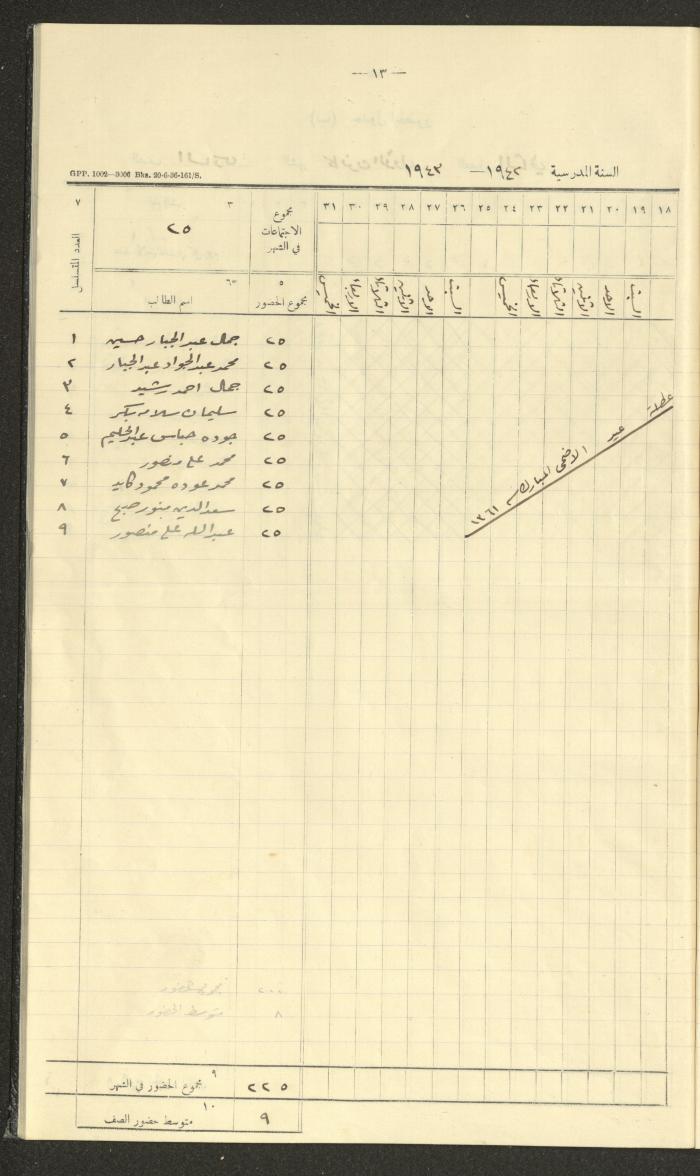 — ١٣ —
السنة المدرسية ١٩٤٢ — ١٩٤٣
GPP. 1002—3006 Bks. 20-6-36-161/S.
١٨ ١٩ ٢٠ ٢١ ٢٢ ٢٣ ٢٤ ٢٥ ٢٦ ٢٧ ٢٨ ٢٩ ٣٠ ٣١
مجموع الاجتماعات في الشهر
٣
٢٥
٧
العدد المتسلسل
السبت الاحد الاثنين الثلاثاء الاربعاء الخميس السبت الاحد الاثنين الثلاثاء الاربعاء الخميس
٥
مجموع الحضور
٦
اسم الطالب
٢٥ جمال عبد الجبار حسين ١
٢٥ محمد عبد الجواد عبد الجبار ٢
٢٥ جمال احمد رشيد ٣
٢٥ سليمان سلامه بكر ٤
٢٥ جوده عباس عبد الحليم ٥
٢٥ محمد علي منصور ٦
٢٥ محمد عوده محمود كايد ٧
٢٥ سعد الدين صبح ٨
٢٥ عبد الله علي منصور ٩
عطلة عيد الاضحى المبارك ١٣٦١
٢٠٠ مجموع الحضور
٨ متوسط الحضور
٢٢٥ مجموع الحضور في الشهر ٩
٩ متوسط حضور الصف ١٠